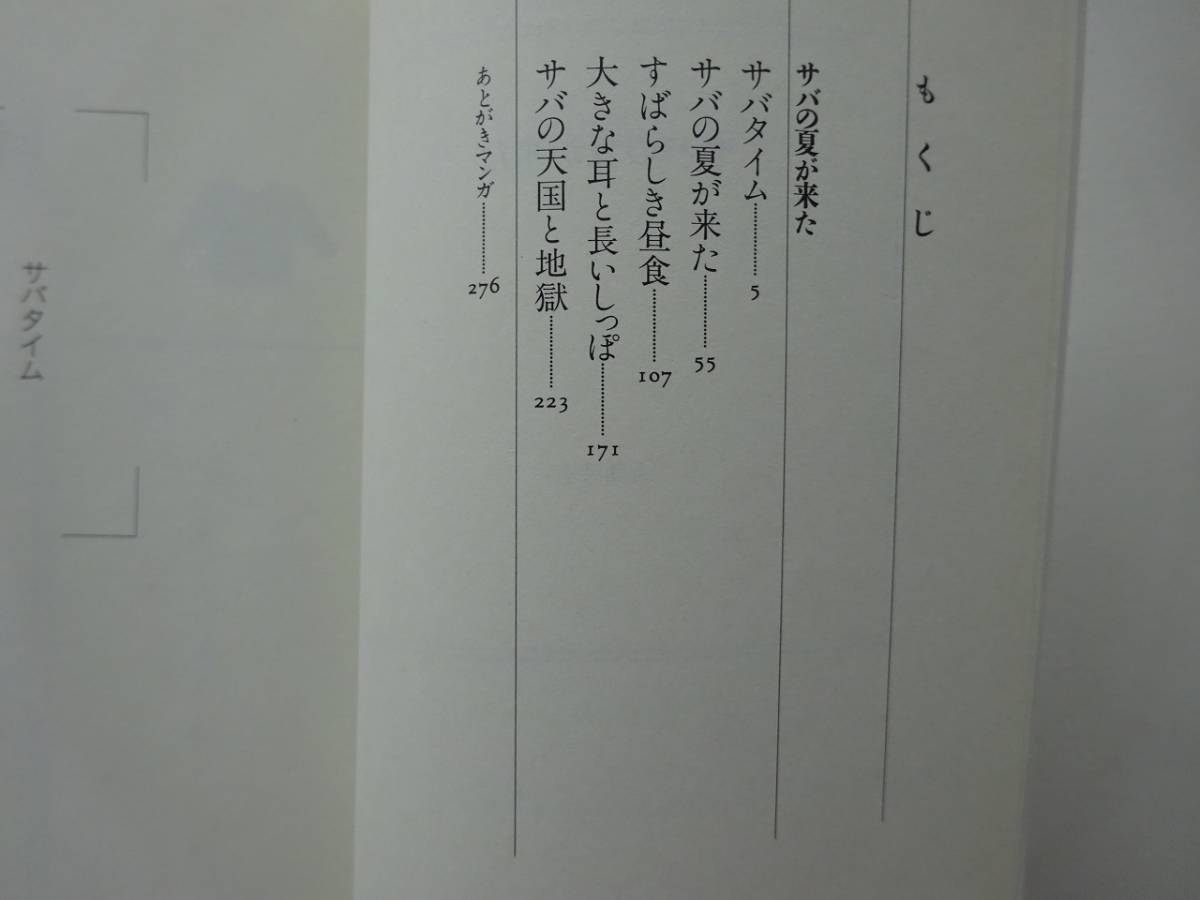 もくじ
サバの夏が来た
サバタイム…………5
サバの夏が来た…………55
すばらしき昼食…………107
大きな耳と長いしっぽ…………171
サバの天国と地獄…………223
あとがきマンガ…………276
サバタイム